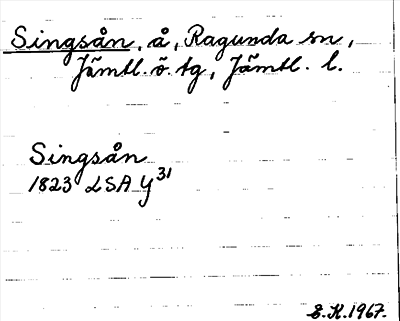 Singsån, å, Ragunda sn,
Jämtl. ö. tg, Jämtl. l.
Singsån
1823 LSA Y31
E.K.1967.